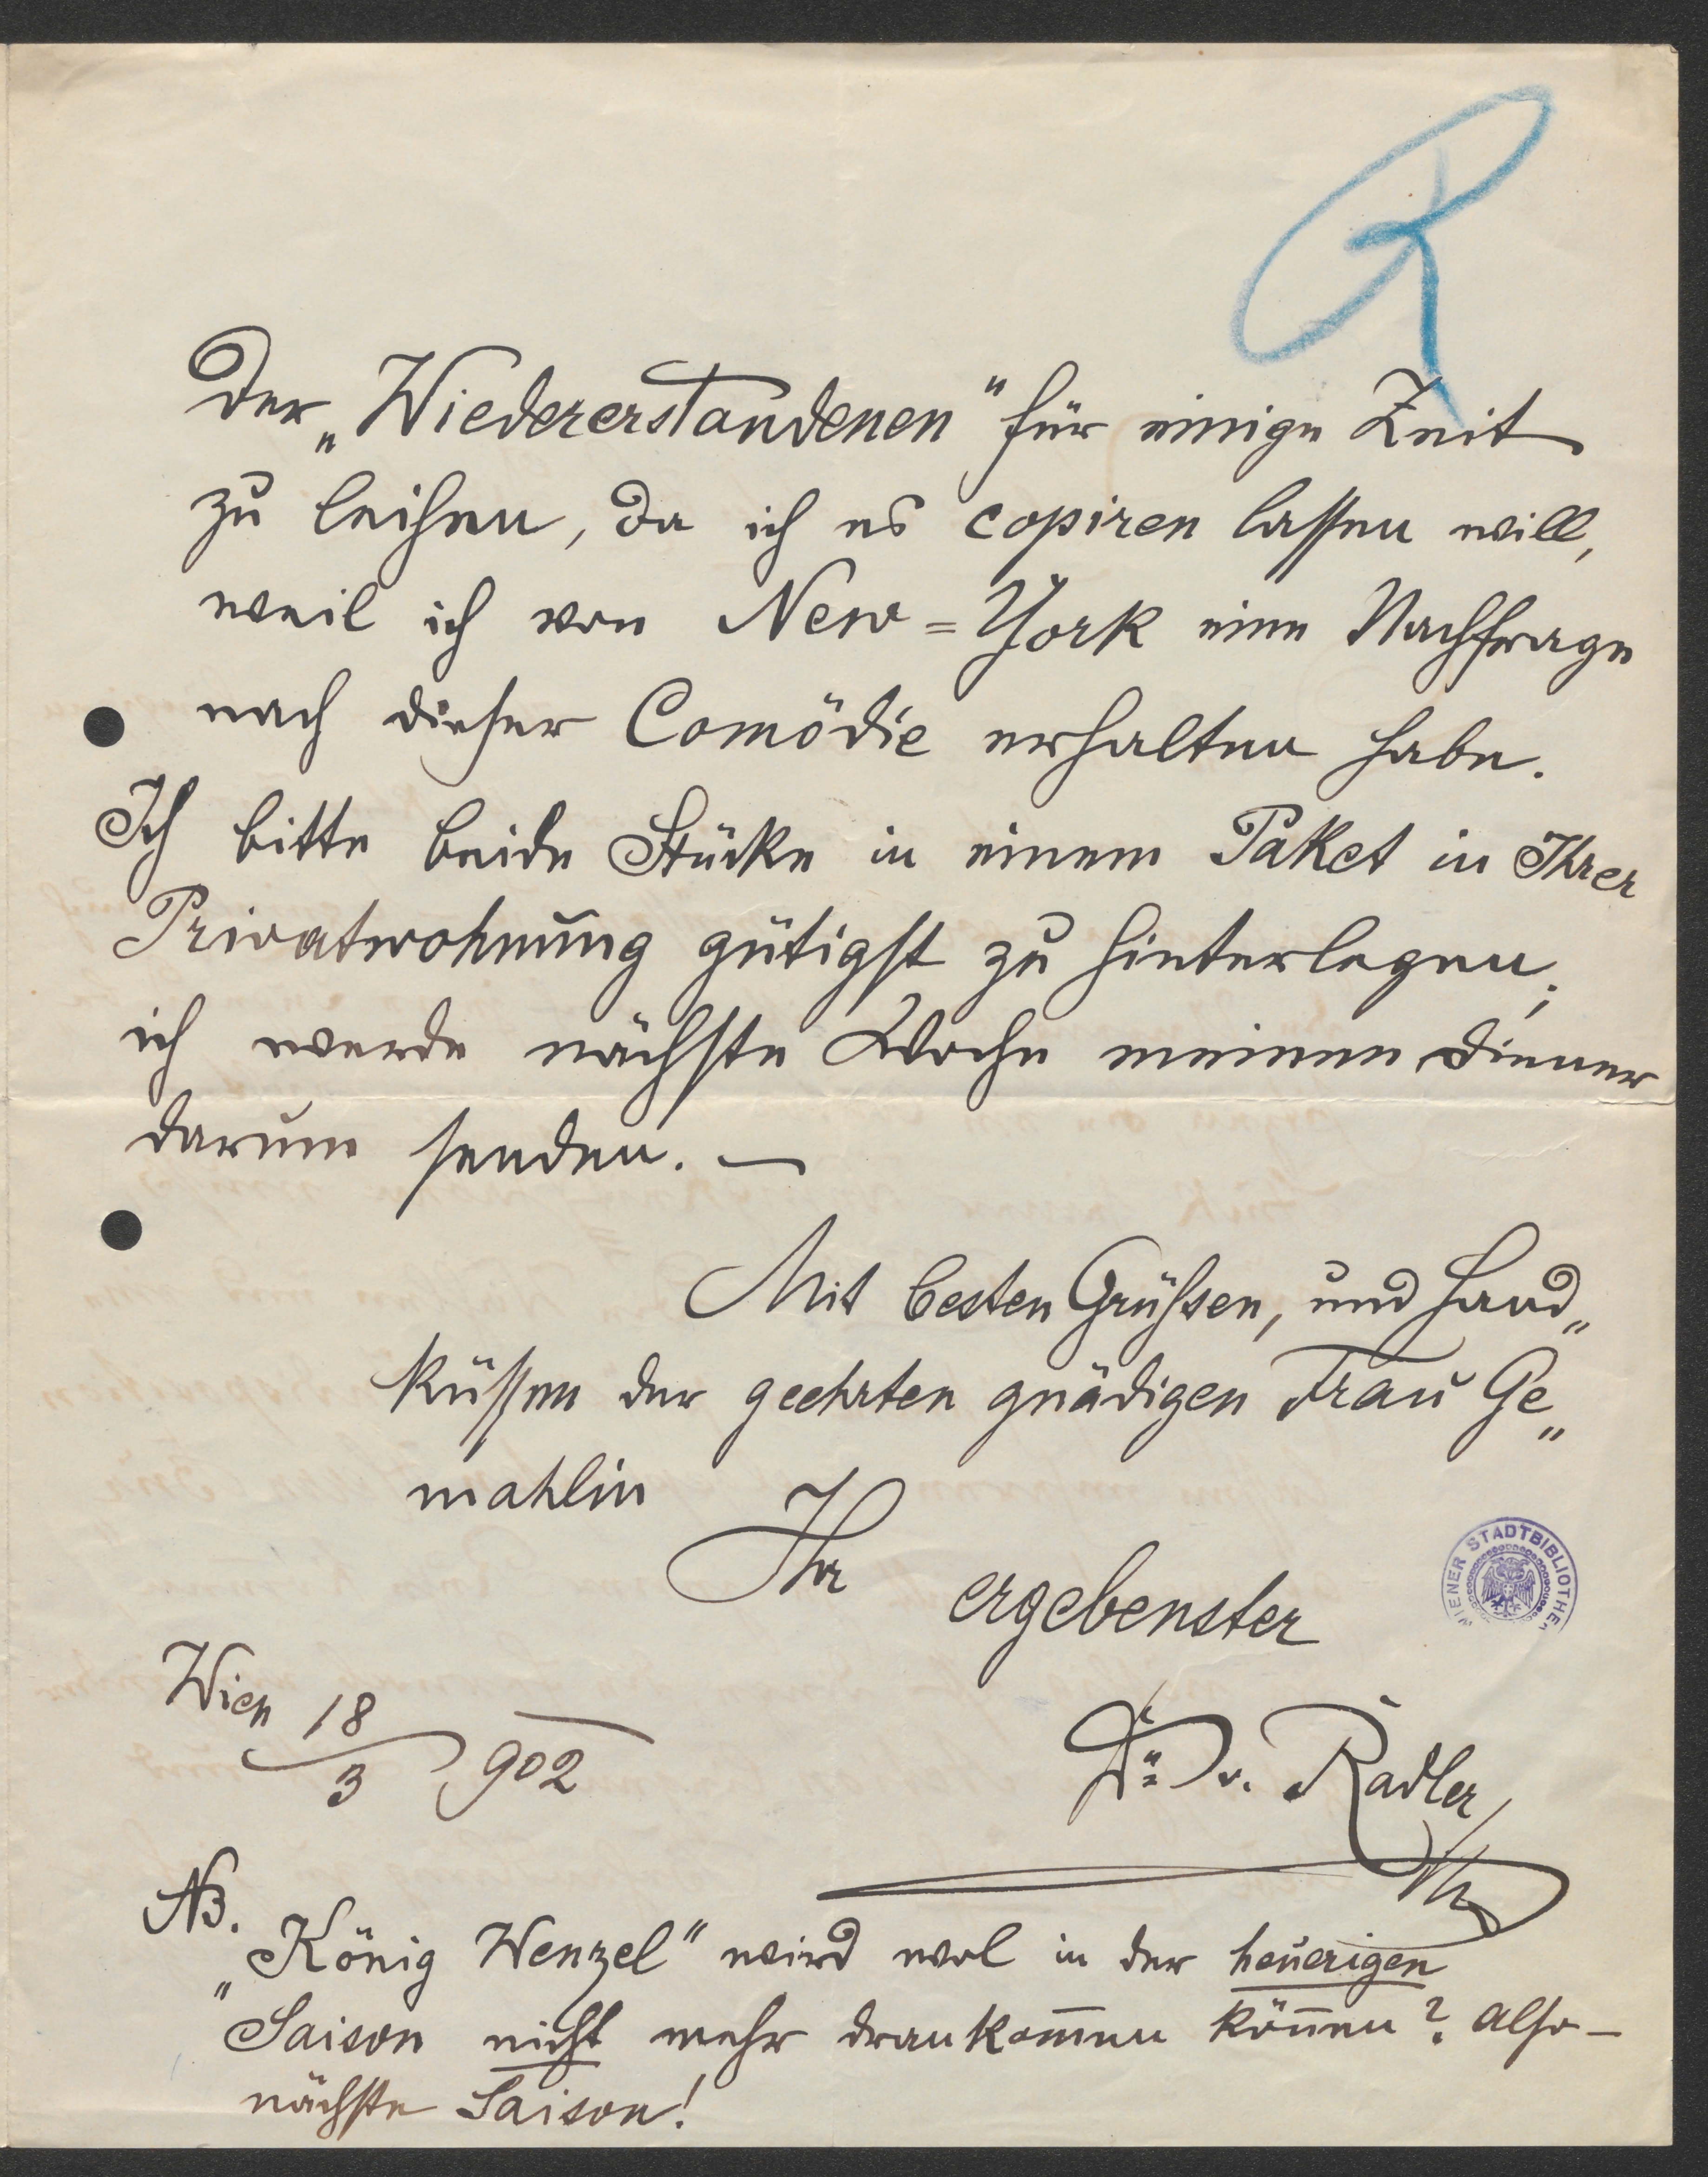 R
der „Wiedererstandenen" für einige Zeit
zu leihen, da ich es copiren lassen will,
weil ich von New=York eine Nachfrage
nach dieser Comödie erhalten habe.
Ich bitte beide Stücke in einem Paket in Ihrer
Privatwohnung gütigst zu hinterlegen;
ich werde nächste Woche meinen Diener
darum senden. —
Mit besten Grüßen, und Hand„
küssen der geehrten gnädigen Frau Ge„
mahlin
Ihr
ergebenster
WIENER STADTBIBLIOTHEK
Wien 18/3 902
Dr. v. Radler
NB.
„König Wenzel" wird wol in der heuerigen
Saison nicht mehr drankom̅en kön̅en? Also –
nächste Saison!